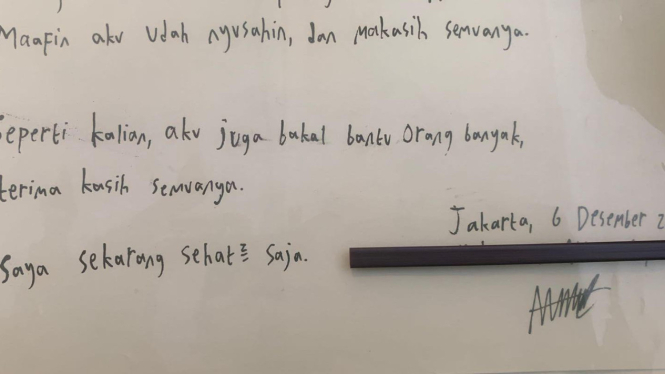 Maafin aku udah nyusahin, dan makasih semuanya.
Seperti kalian, aku juga bakal bantu orang banyak,
terima kasih semuanya.
Jakarta, 6 Desember 2
Saya sekarang sehat² saja.